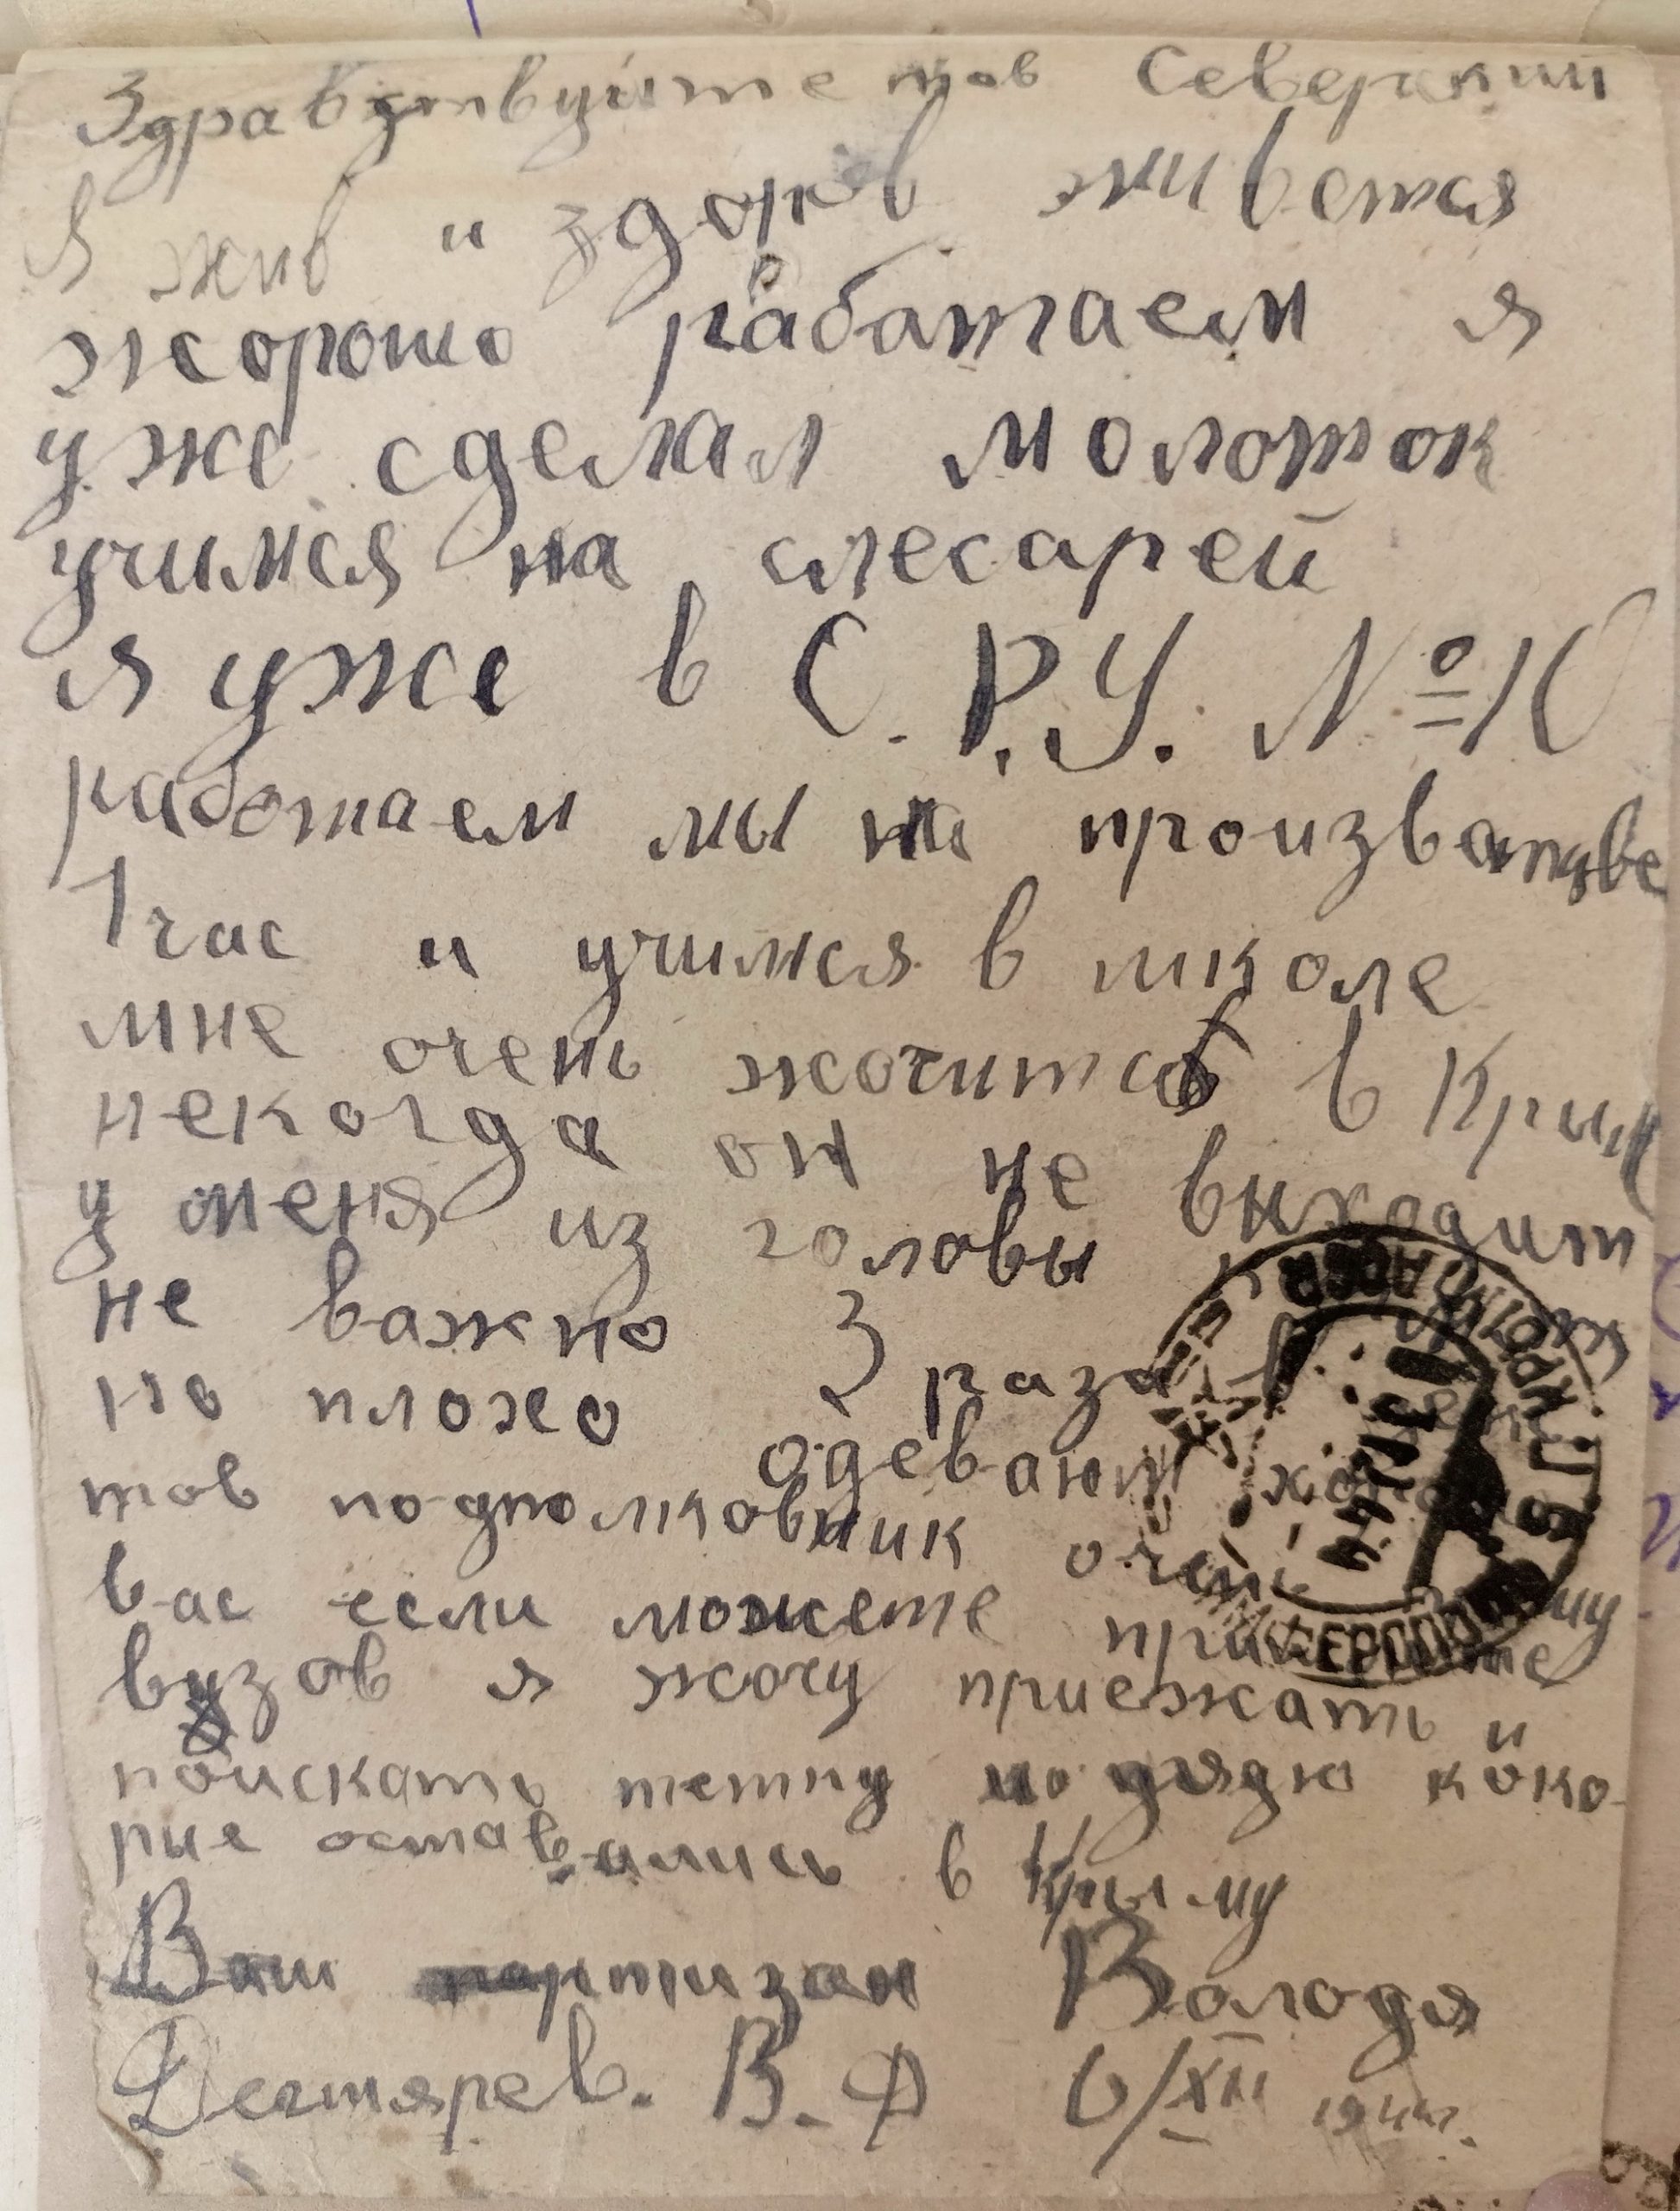 Здравствуйте тов Северский
Я жив и здоров живется
хорошо работаем я
уже сделал молоток
учимся на слесарей
я уже в С.Р.У. №10
работаем мы на произванстве
1 час и учимся в школе
мне очень хочится в Крим
некогда он не виходит
у меня из головы
не важно 3 раза в
но плохо одевают
тов подполковник очень
вас если можете
вузов я хочу приежать и
поискать тетку и дядю коко
рие оставались в Крыму
Ваш партизан Володя
Дегтярев. В. Ф 6/XII 1944г.
СИМФЕРОПОЛЬ